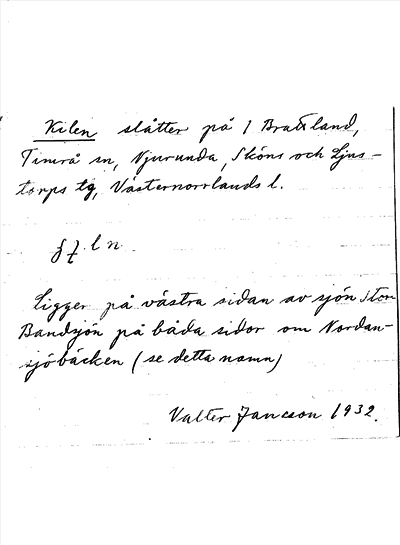 Kilen slåtter på 1 Brattland,
Timrå sn, Njurunda, Sköns och Ljus-
torps tg, Västernorrlands l.
Ligger på västra sidan av sjön Stor
Bandsjön på båda sidor om Nordan-
sjöbäcken (se detta namn)
Valter Jansson 1932.